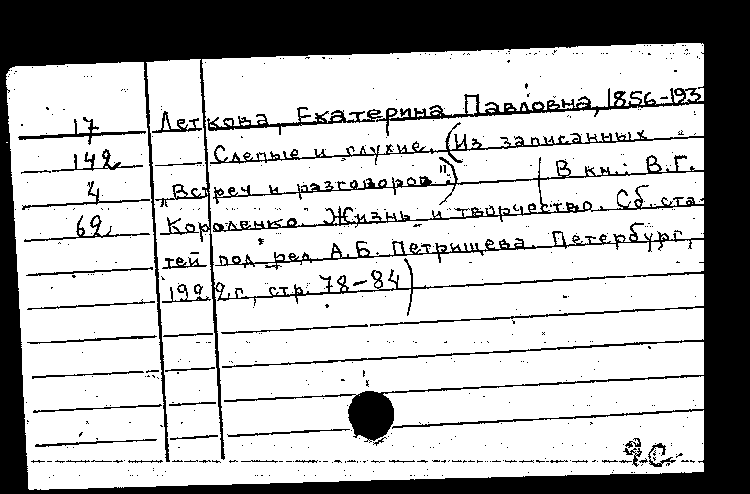 17 Леткова, Екатерина Павловна, 1856-193
142 Слепые и глухие. (Из записанных
4 „Встреч и разговоров".) (В кн.: В.Г.
62 Короленко. Жизнь и творчество. Сб. ста-
тей под ред А.Б. Петрищева. Петербург,
1922 г., стр. 78-84)